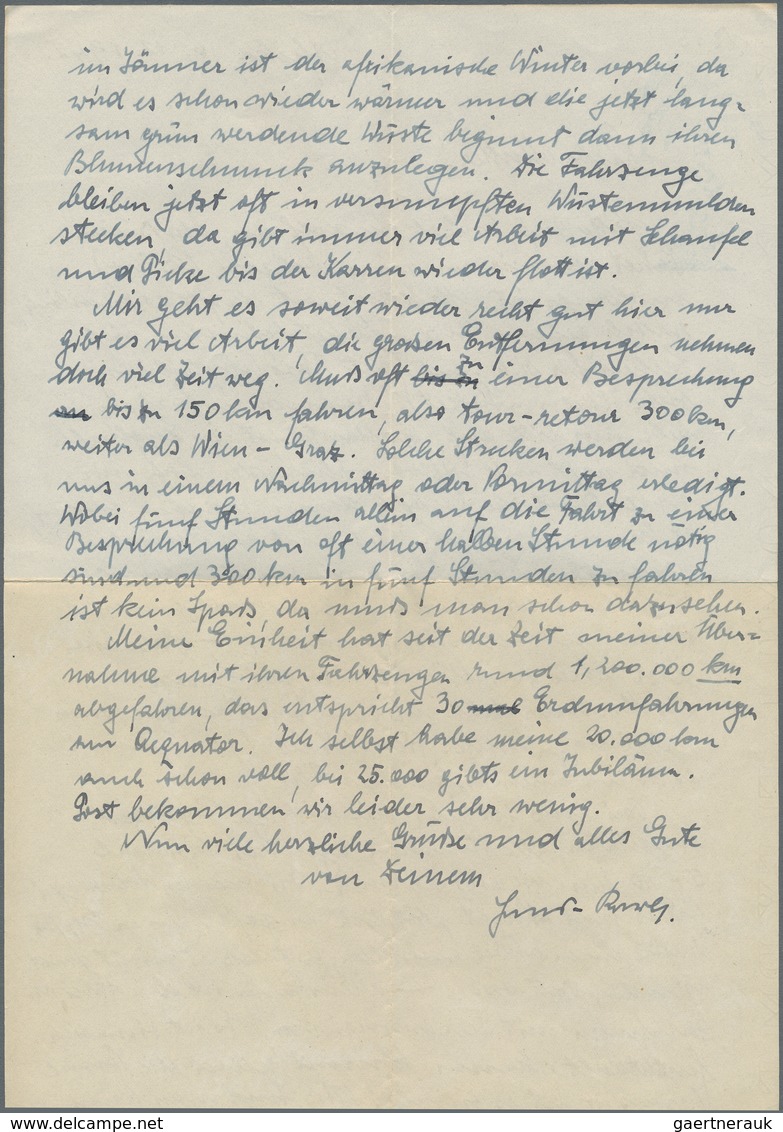 im Jänner ist der afrikanische Winter vorbei, da
wird es schon wieder wärmer und die jetzt lang=
sam grün werdende Wüste beginnt dann ihren
Blumenschmuck anzulegen. Die Fahrzeuge
bleiben jetzt oft in versumpften Wüstenmulden
stecken, da gibt immer viel Arbeit mit Schaufel
und Picke bis der Karren wieder flott ist.
Mir geht es soweit wieder recht gut hier nur
gibt es viel Arbeit, die großen Entfernungen nehmen
doch viel Zeit weg. Muß oft bis zu zu einer Besprechung
an bis zu 150 km fahren, also tour-retour 300 km,
weiter als Wien - Graz. Solche Strecken werden bei
uns in einem Nachmittag oder Vormittag erledigt.
Wobei fünf Stunden allein auf die Fahrt zu einer
Besprechung von oft einer halben Stunde nötig
sind und 300 km in fünf Stunden zu fahren
ist kein Spaß da muß man schon dazusehen.
Meine Einheit hat seit der Zeit meiner Über=
nahme mit ihren Fahrzeugen rund 1,200.000 km
abgefahren, das entspricht 30 mal Erdumfahrungen
am Aequator. Ich selbst habe meine 20.000 km
auch schon voll, bei 25.000 gibts ein Jubiläum.
Post bekommen wir leider sehr wenig.
Nun viele herzliche Grüße und alles Gute
von Deinem
delcampe.net
gaertnerauk